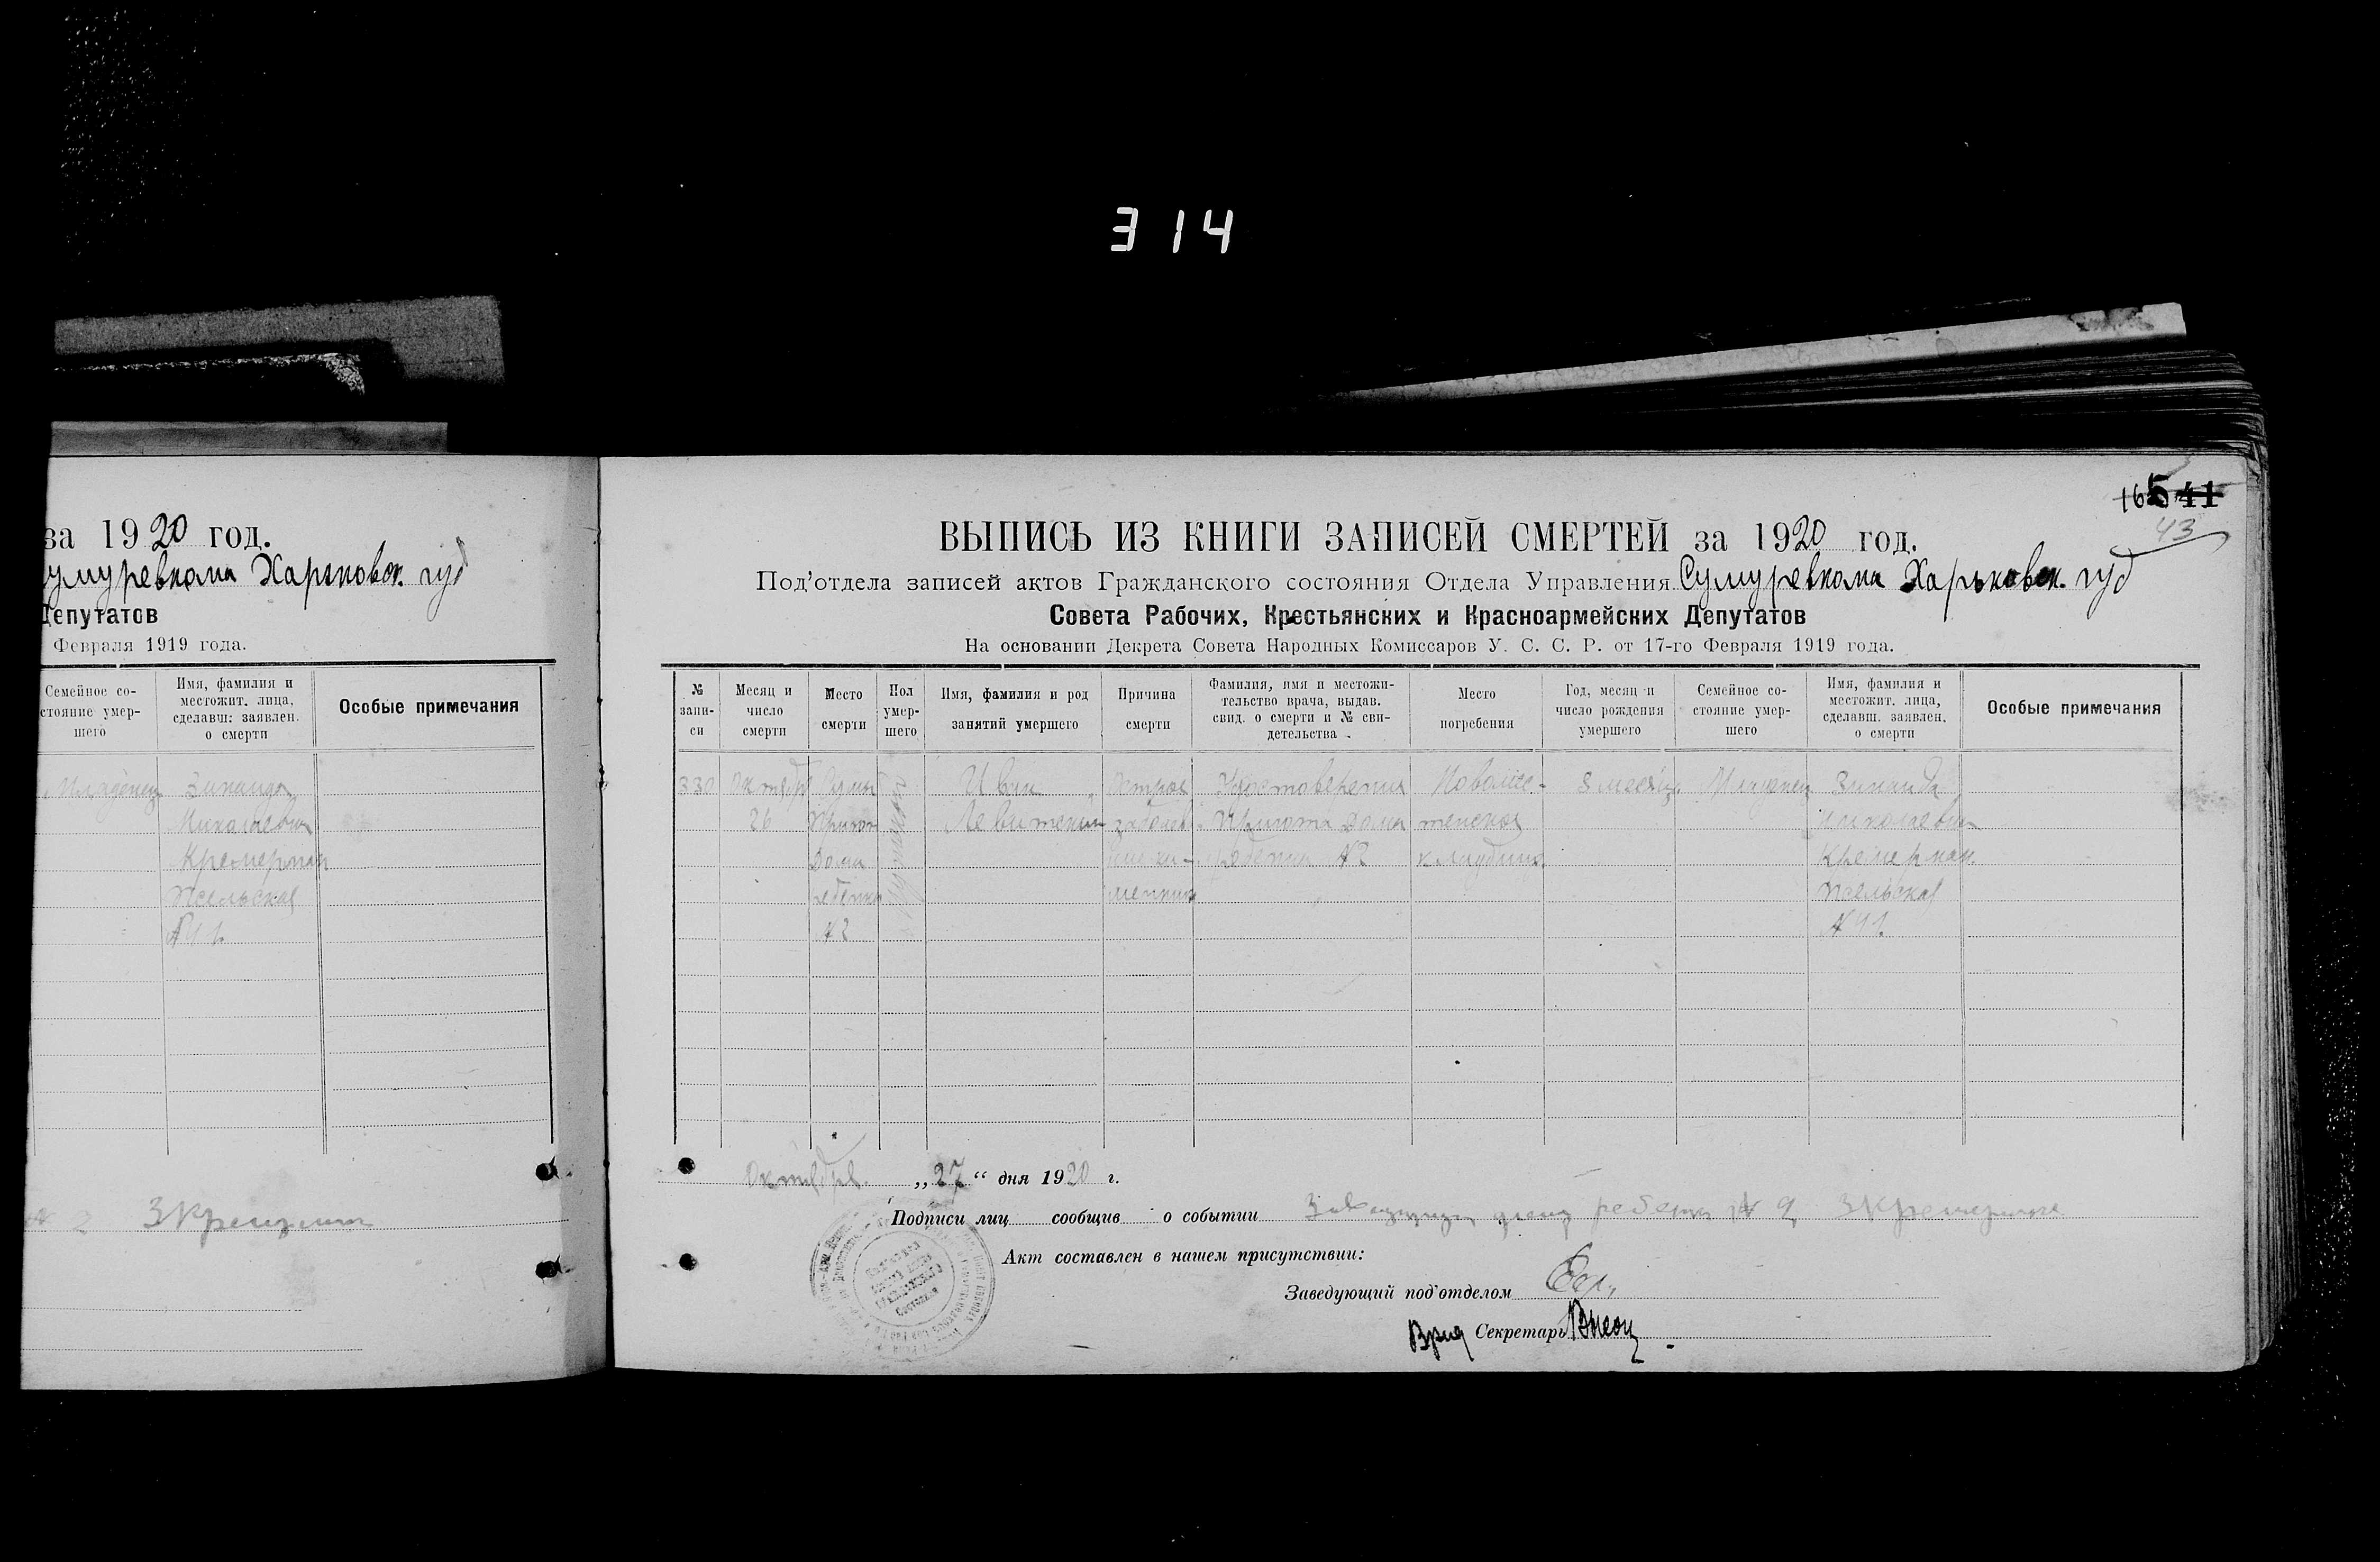 314
за 1920 год.
умуревкома Харьковск. губ
Депутатов
Февраля 1919 года.
Семейное со-
стояние умер-
шего
Имя, фамилия и
местожит. лица,
сделавш: заявлен.
о смерти
Особые примечания
Младенец
Зинаида
Николаевна
Кремерман
Псельская
2 ЗКремерман
16541
43
ВЫПИСЬ ИЗ КНИГИ ЗАПИСЕЙ СМЕРТЕЙ за 1920 год.
Под'отдела записей актов Гражданского состояния Отдела Управления Сумуревкома Харьковск. губ
Совета Рабочих, Крестьянских и Красноармейских Депутатов
На основании Декрета Совета Народных Комиссаров У. С. С. Р. от 17-го Февраля 1919 года.
№
запи-
си
Месяц и
число
смерти
Место
смерти
Пол
умер-
шего
Имя, фамилия и род
занятий умершего
Причина
смерти
Фамилия, имя и местожи-
тельство врача, выдав.
свид. о смерти и № сви-
детельства
Место
погребения
Год, месяц и
число рождения
умершего
Семейное со-
стояние умер-
шего
Имя, фамилия и
местожит. лица,
сделавш. заявлен.
о смерти
Особые примечания
330
Октябр
26
Сумы
Приют
Дома
ребенка
№2
Иван
Острое
заболев
Удостоверение
Приюта Дома
ребенка №2
кладбище
8 месяц.
Младенец
Зинаида
Николаевна
Кремерман
Псельская
Октября „27“ дня 1920 г.
Подписи лиц сообщив о событии Заведующая ребенка № 2 ЗКремерман
Акт составлен в нашем присутствии:
Заведующий под'отделом
Врид Секретарь